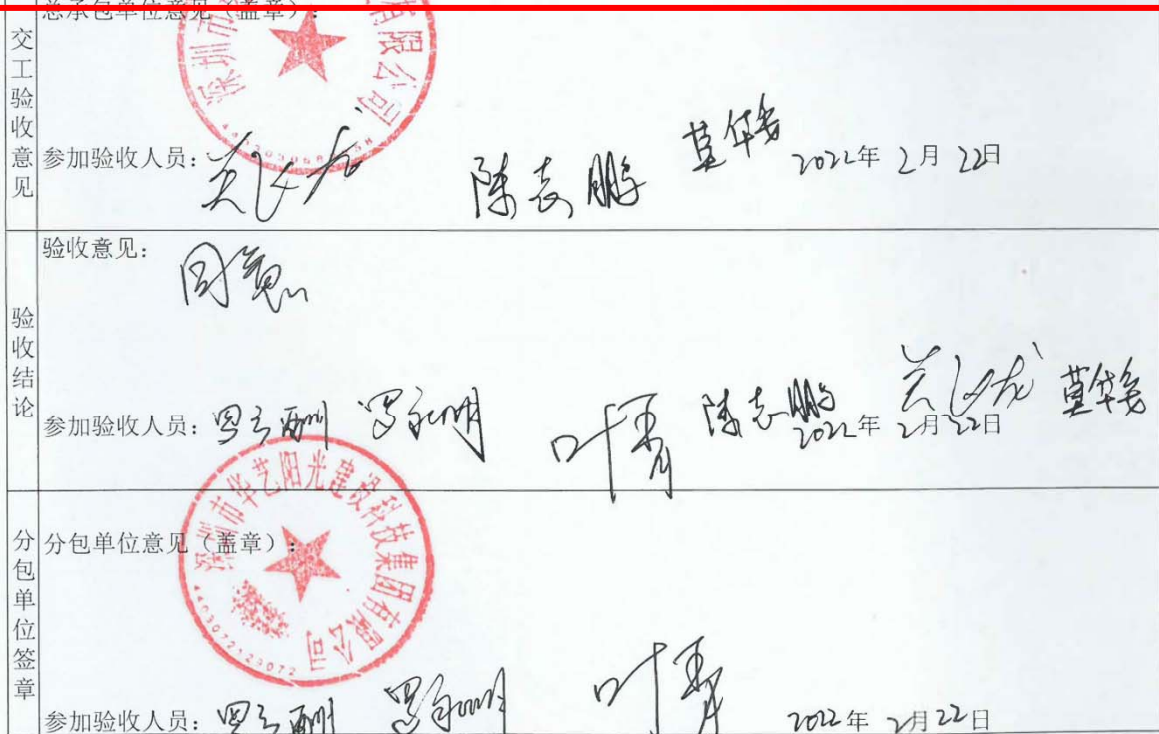 总承包单位意见（盖章）：
深圳市
有限公司
交工验收意见
参加验收人员：
陈志鹏 莫华秀
2022年 2月 22日
验收结论
验收意见：
同意
参加验收人员：
罗永明 叶青 陈志鹏
莫华秀
2022年 2月22日
分包单位签章
分包单位意见（盖章）：
深圳市华艺阳光建设科技集团有限公司
4403072129072
参加验收人员：
罗永明 叶青
2022年 2月22日